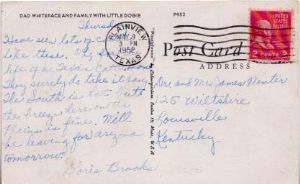 DAD WHITEFACE AND FAMILY WITH LITTLE DOGIE
P952
Thursday
Have seen lots of
like these.
life of a Texas
They surely do take it easy
The South is hot but
the breeze here on the
Plains is fine. Will
be leaving for
tomorrow.
Doris Brooks
PLAINVIEW
PM
1952
TEXAS
Post Card
ADDRESS
Dr and Mrs James Winter
125 Wiltshire
Louisville
Kentucky